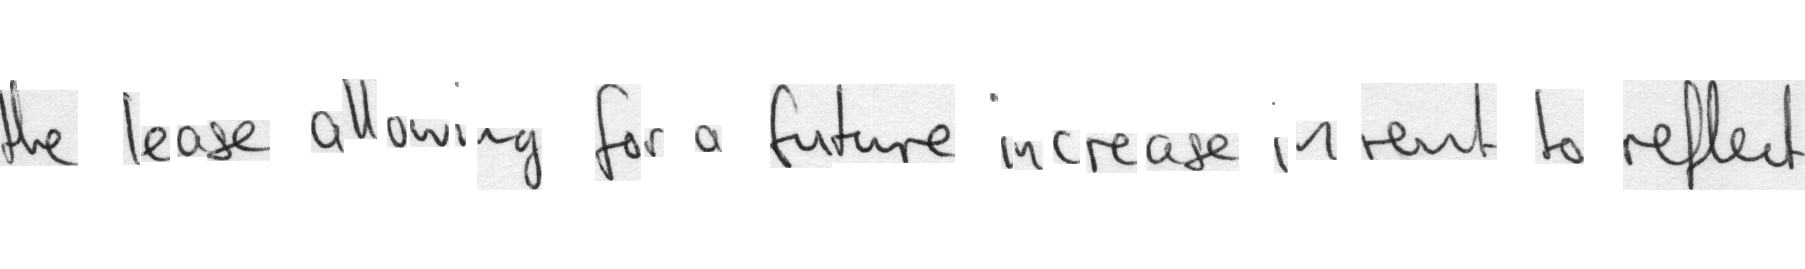 the lease allowing for a future increase in rent to reflect